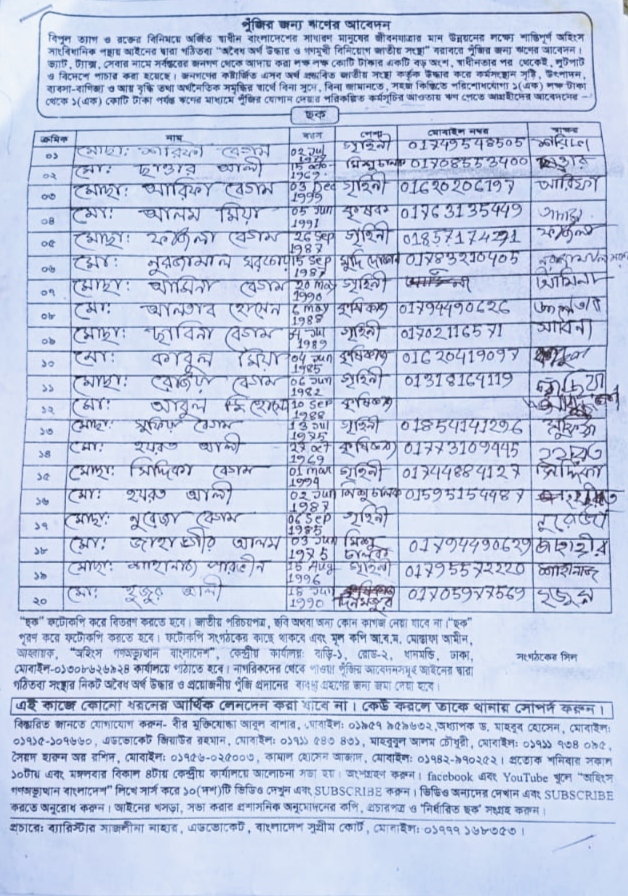 পুঁজির জন্য ঋণের আবেদন
বিপুল ত্যাগ ও রক্তের বিনিময়ে অর্জিত স্বাধীন বাংলাদেশের সাধারণ মানুষের জীবনযাত্রার মান উন্নয়নের লক্ষ্যে শান্তিপূর্ণ অহিংস
সাংবিধানিক পন্থায় আইনের দ্বারা গঠিতব্য "অবৈধ অর্থ উদ্ধার ও গণমুখী বিনিয়োগ জাতীয় সংস্থা" বরাবরে পুঁজির জন্য ঋণের আবেদন।
ভ্যাট, ট্যাক্স, সেবার নামে সর্বস্তরের জনগণ থেকে আদায় করা লক্ষ লক্ষ কোটি টাকার একটি বড় অংশ, স্বাধীনতার পর থেকেই, লুটপাট
ও বিদেশে পাচার করা হয়েছে। জনগণের কষ্টার্জিত এসব অর্থ প্রস্তাবিত জাতীয় সংস্থা কর্তৃক উদ্ধার করে কর্মসংস্থান সৃষ্টি, উৎপাদন,
ব্যবসা-বাণিজ্য ও আয় বৃদ্ধি তথা অর্থনৈতিক সমৃদ্ধির স্বার্থে বিনা সুদে, বিনা জামানতে, সহজ কিস্তিতে পরিশোধযোগ্য ১(এক) লক্ষ টাকা
থেকে ১(এক) কোটি টাকা পর্যন্ত ঋণের মাধ্যমে পুঁজির যোগান দেয়ার পরিকল্পিত কর্মসূচির আওতায় ঋণ পেতে আগ্রহীদের আবেদনের -
ছক
ক্রমিক নাম বয়স পেশা মোবাইল নম্বর স্বাক্ষর
০১ মোছা: শরিফা বেগম 02 Jul গৃহিনী 01749548505
০২ মো: ছাত্তার আলী 1969 মিশু চালক 01708553400 ছাত্তার
০৩ মোছা: আরিফা বেগম 03 Dec 1999 গৃহিনী 01620206197 আরিফা
০৪ মো: আলম মিয়া 05 Jun 1991 কৃষক 01763135449 আলম
০৫ মোছা: ফজিলা বেগম 26 Sep 1987 গৃহিনী 01857174291 ফজিলা
০৬ মো: নুরজামাল সরকার 15 Sep 1987 মুদি দোকান 01783210405
০৭ মোছা: আমিনা বেগম 20 May 1990 গৃহিনী আমিনা
০৮ মো: আলতাব হোসেন 6 May 1988 কৃষিকাজ 01794490626
০৯ মোছা: ছাবিনা বেগম 4 Jul 1989 গৃহিনী 01702116571 সাবিনা
১০ মো: কাবুল মিয়া 04 Jun 1985 কৃষিকাজ 01620419097 কাবুল
১১ মোছা: রোজিনা বেগম 06 Jun 1982 গৃহিনী 01318164119
১২ মো: আবুল হোসেন 10 Sep 1988 কৃষিকাজ
১৩ মোছা: সুফিয়া বেগম 13 Jul 1975 গৃহিনী 01854141296 সুফিয়া
১৪ মো: হযরত আলী 27 Oct 1969 কৃষিকাজ 01773109445 হযরত
১৫ মোছা: সিদ্দিকা বেগম 01 Mar 1994 গৃহিনী 01744884127 সিদ্দিকা
১৬ মো: হযরত আলী 02 Jun 1987 মিশু চালক 01595154487 হযরত
১৭ মোছা: নুরেজা বেগম 06 Sep 1985 গৃহিনী নুরেজা
১৮ মো: জাহাঙ্গীর আলম 03 Jun 1975 মিশু চালক 01794490629 জাহাঙ্গীর
১৯ মোছা: শাহানাজ পারভীন 15 Aug 1996 গৃহিনী 01795572220 শাহানাজ
২০ মো: হুজুর আলী 15 Jun 1990 দিনমজুর 01705977569 হুজুর
"ছক" ফটোকপি করে বিতরণ করতে হবে। জাতীয় পরিচয়পত্র, ছবি অথবা অন্য কোন কাগজ নেয়া যাবে না। "ছক"
পূরণ করে ফটোকপি করতে হবে। ফটোকপি সংগঠকের কাছে থাকবে এবং মূল কপি আ.ব.ম. মোস্তফা আমীন,
আহ্বায়ক, "অহিংস গণঅভ্যুত্থান বাংলাদেশ", কেন্দ্রীয় কার্যালয়: বাড়ি-১, রোড-২, ধানমন্ডি, ঢাকা,
সংগঠকের সিল
মোবাইল-০১৩০৮৬২৬৯২৪ কার্যালয়ে পাঠাতে হবে। নাগরিকদের থেকে পাওয়া পুঁজির আবেদনসমূহ আইনের দ্বারা
গঠিতব্য সংস্থার নিকট অবৈধ অর্থ উদ্ধার ও প্রয়োজনীয় পুঁজি প্রদানের ব্যবস্থা গ্রহণের জন্য জমা দেয়া হবে।
এই কাজে কোনো ধরনের আর্থিক লেনদেন করা যাবে না। কেউ করলে তাকে থানায় সোপর্দ করুন।
বিস্তারিত জানতে যোগাযোগ করুন- বীর মুক্তিযোদ্ধা আবুল বাশার, মোবাইল: ০১৯৫৭ ৯৫৯৬৩২, অধ্যাপক ড. মাহবুব হোসেন, মোবাইল:
০১৭১৫-১০৭৬৬০, এডভোকেট জিয়াউর রহমান, মোবাইল: ০১৭১১ ৫৪৩ ৪৩১, মাহবুবুল আলম চৌধুরী, মোবাইল: ০১৭১১ ৭৩৪ ০৯৫,
সৈয়দ হারুন অর রশিদ, মোবাইল: ০১৭৫৬-০২৫০০৩, কামাল হোসেন আজাদ, মোবাইল: ০১৭৪২-৯৯০২৫২। প্রত্যেক শনিবার সকাল
১০টায় এবং মঙ্গলবার বিকাল ৪টায় কেন্দ্রীয় কার্যালয়ে আলোচনা সভা হয়। অংশগ্রহণ করুন। facebook এবং YouTube খুলে "অহিংস
গণঅভ্যুত্থান বাংলাদেশ" লিখে সার্চ করে ১০(দশ)টি ভিডিও দেখুন এবং SUBSCRIBE করুন। ভিডিও অন্যদের দেখান এবং SUBSCRIBE
করতে অনুরোধ করুন। আইনের খসড়া, সভা করার প্রশাসনিক অনুমোদনের কপি, প্রচারপত্র ও 'নির্ধারিত ছক' সংগ্রহ করুন।
প্রচারে: ব্যারিস্টার সাজলীমা নাহার, এডভোকেট, বাংলাদেশ সুপ্রীম কোর্ট, মোবাইল: ০১৭৭৭ ১৬৮৩৫৩।